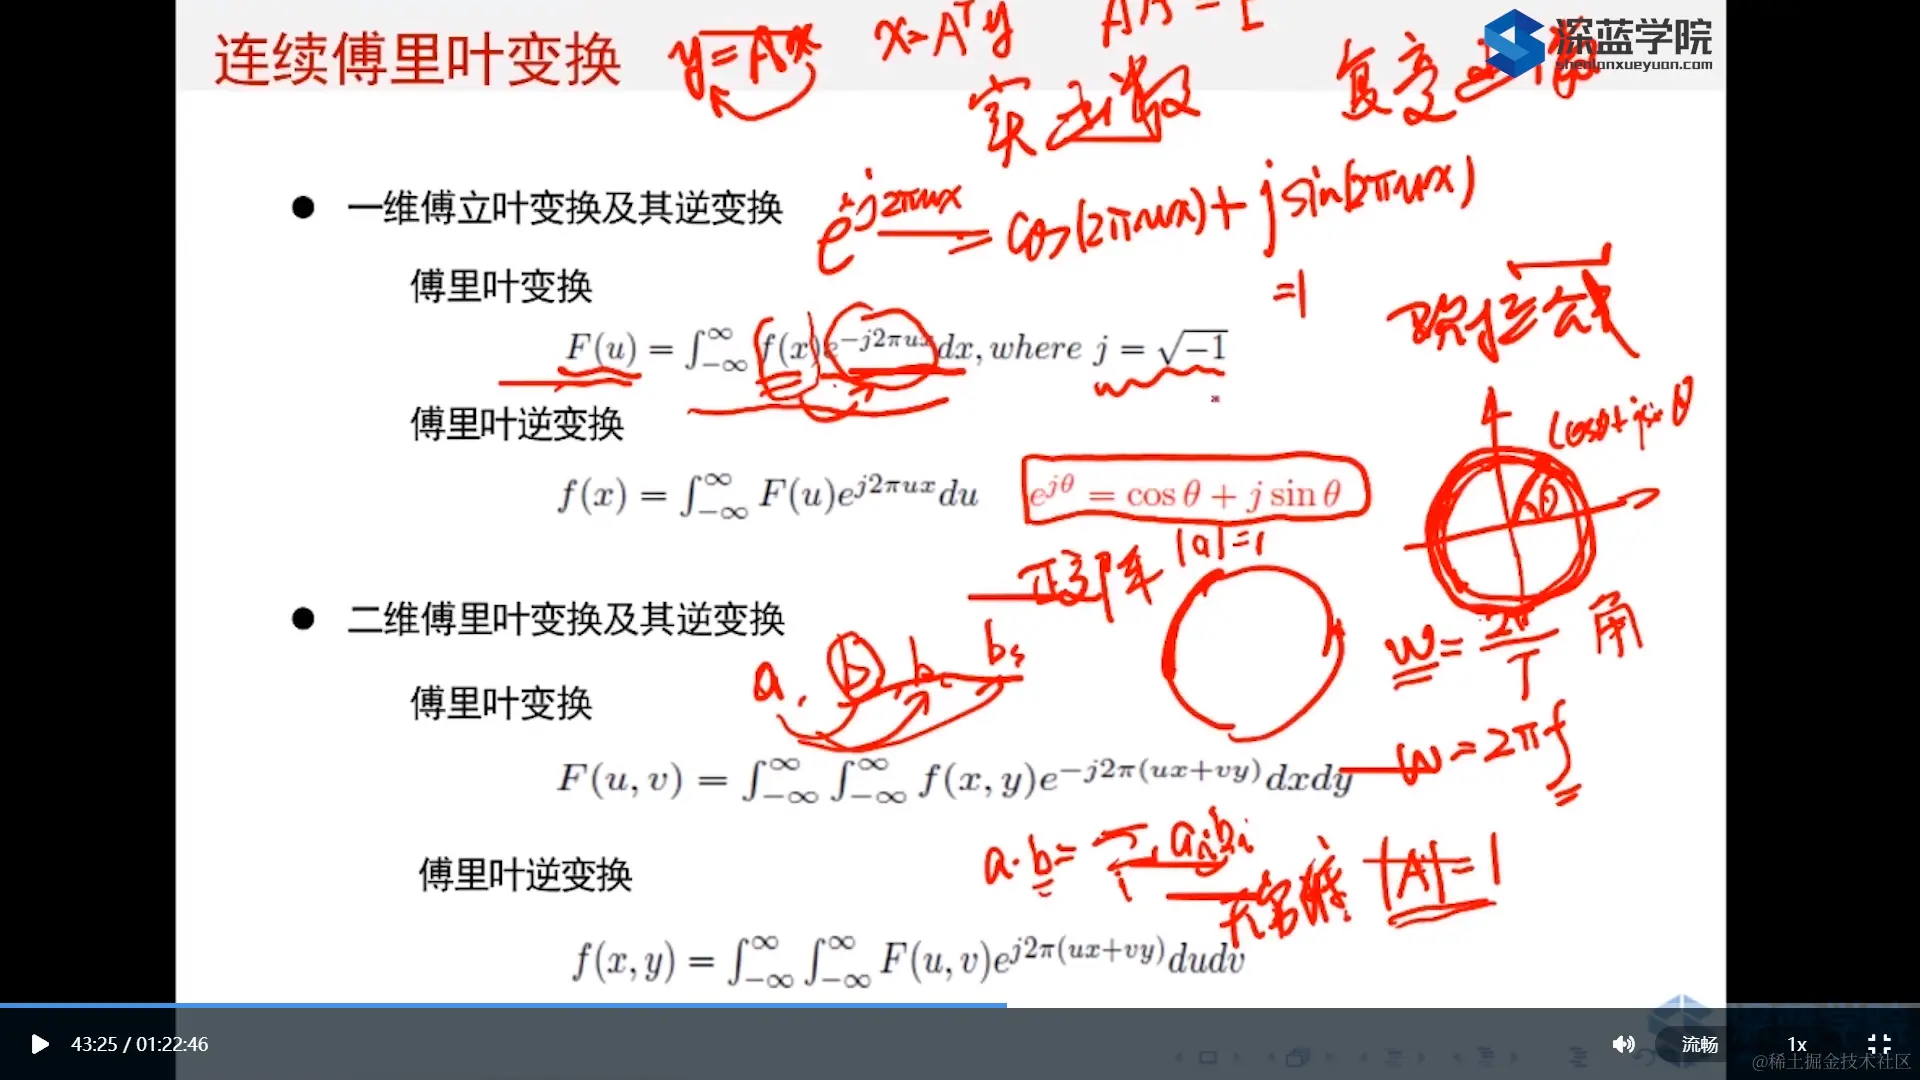 连续傅里叶变换
y=Ax
x=Aᵀy
深蓝学院
shenlanxueyuan.com
实函数
● 一维傅立叶变换及其逆变换
e^{j2πux} = cos(2πux)+jsin(2πux)
=1
傅里叶变换
F(u) = ∫_{-∞}^{∞} f(x)e^{-j2πux}dx, where j = √-1
傅里叶逆变换
cosθ+jsinθ
θ
f(x) = ∫_{-∞}^{∞} F(u)e^{j2πux}du
e^{jθ} = cos θ + j sin θ
正交阵
|a|=1
● 二维傅里叶变换及其逆变换
a. b b. b
w=2π/T 角
傅里叶变换
F(u, v) = ∫_{-∞}^{∞} ∫_{-∞}^{∞} f(x, y)e^{-j2π(ux+vy)}dxdy
w=2πf
a·b= Σ_i a_i b_i
|A|=1
傅里叶逆变换
f(x, y) = ∫_{-∞}^{∞} ∫_{-∞}^{∞} F(u, v)e^{j2π(ux+vy)}dudv
43:25 / 01:22:46
流畅
1x
@稀土掘金技术社区